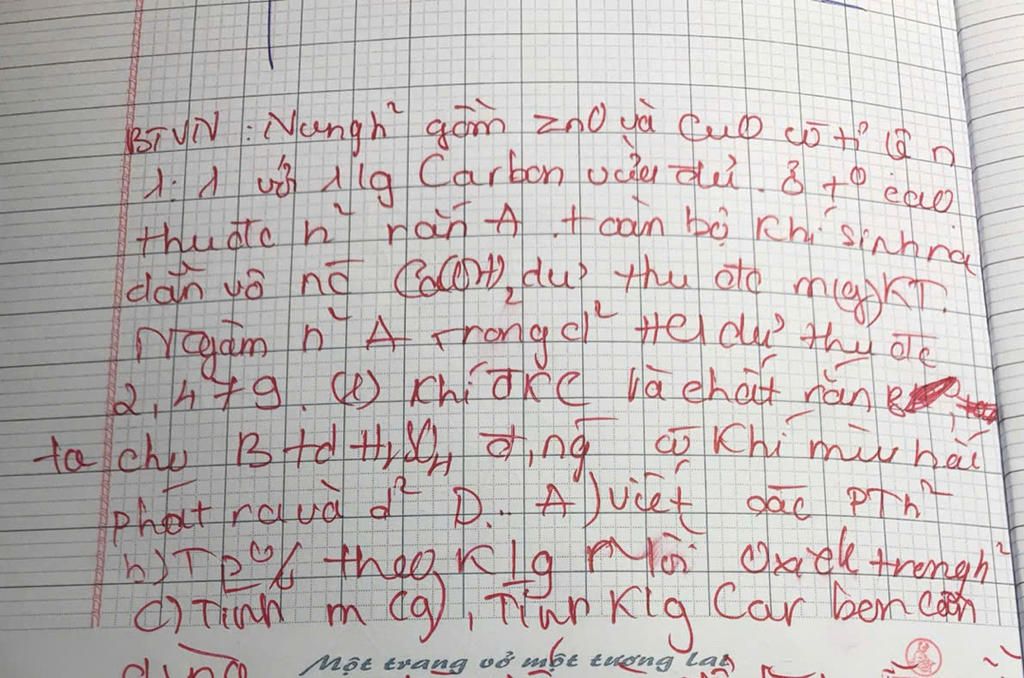 BTVN: Nung h² gồm ZnO và CuO có tỉ lệ n
1:1 với 1lg Carbon vừa đủ. Ở t⁰ cao
thu đc h² rắn A. toàn bộ khí sinh ra
dẫn vô nc Ca(OH)₂ dư thu đc m(g) KT.
Ngâm h² A trong d² HCl dư thu đc
2,479. (l) khí ĐKC và chất rắn B
ta cho B td H₂SO₄ đ, ng có khí mùi hắc
phát ra và d² D.. A) viết các PTh²
b) TP% theo Klg mỗi Oxide trong h²
C) Tính m (g), Tính Klg Carbon cần
dùng
Một trang vở một tương lai